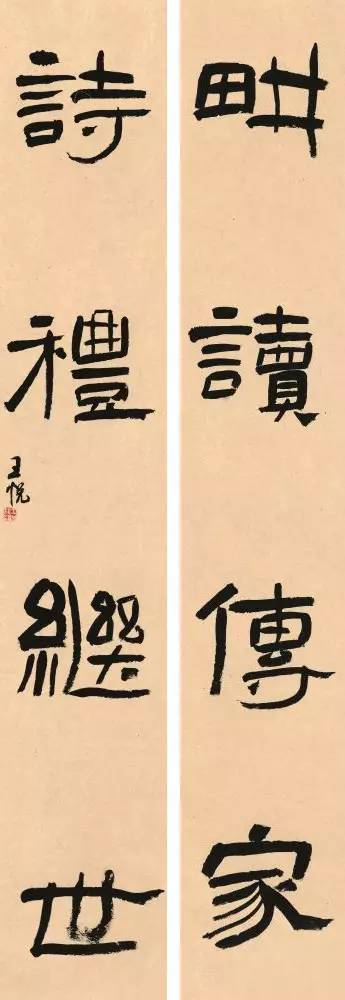 畊讀傳家
詩禮繼世
王悦